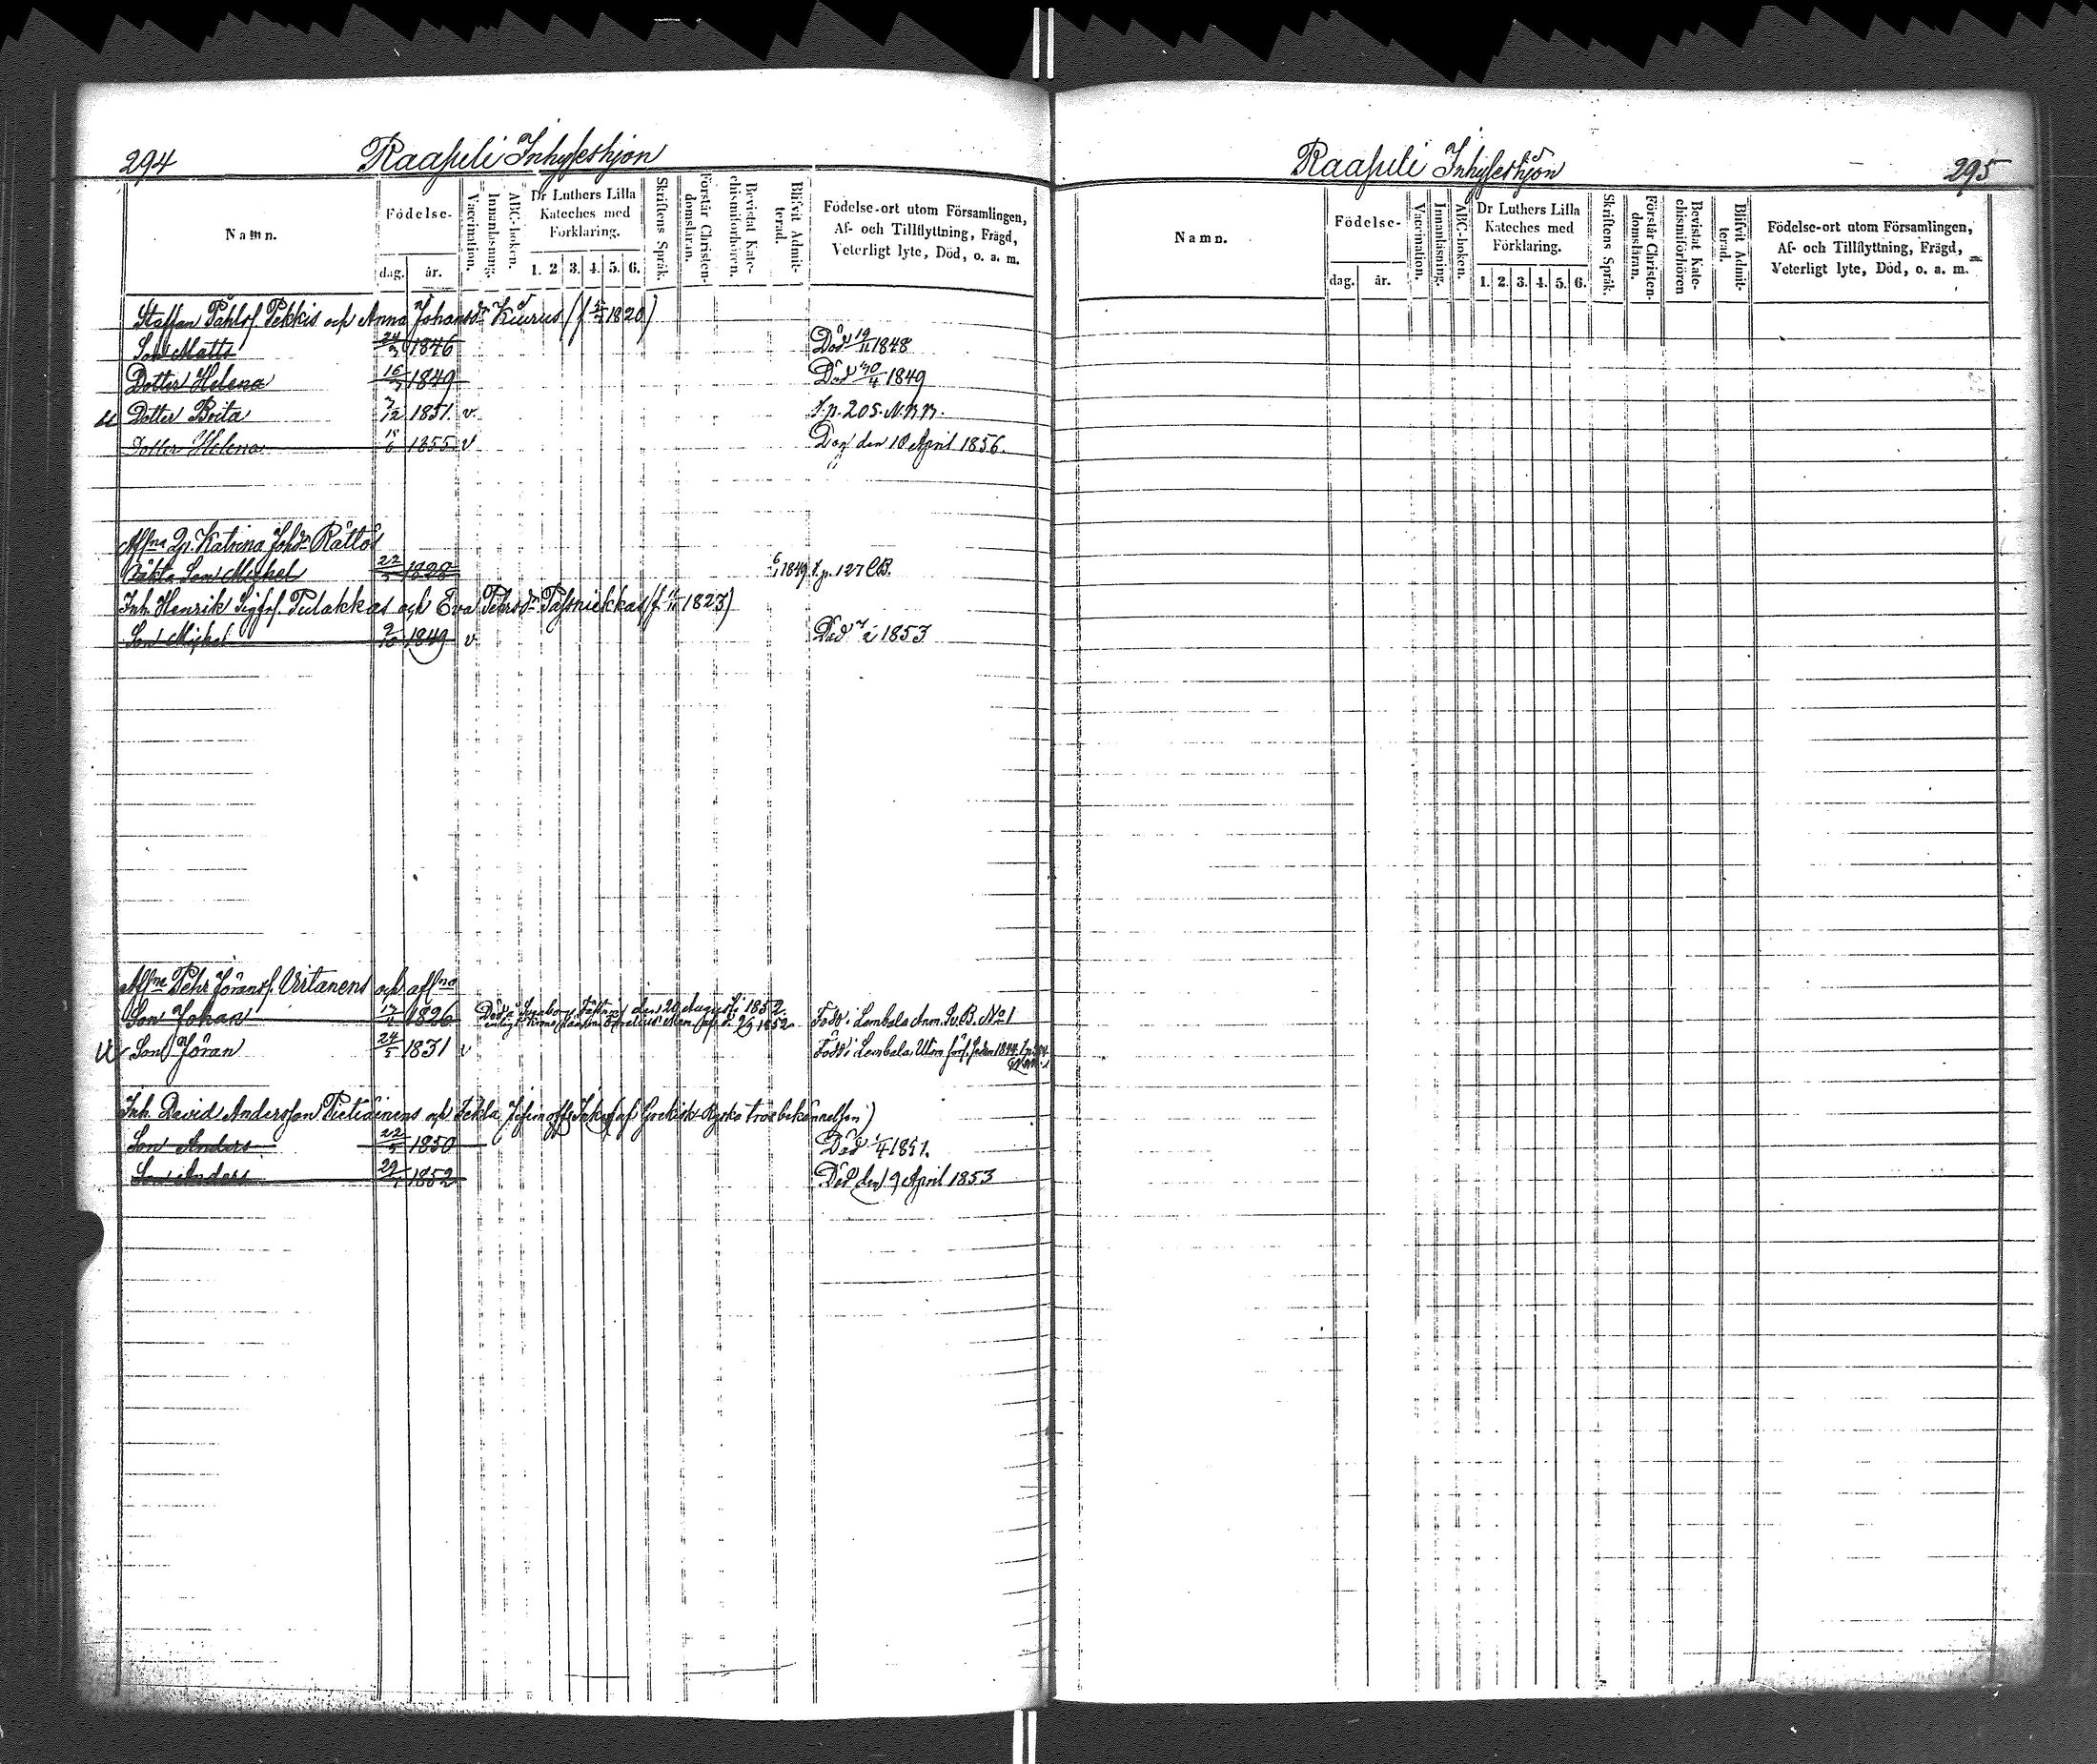 294
Raasuli Inhyseshjon
Namn.
Födelse-
dag. år.
Vaccination.
Innanläsning.
ABC-boken.
Dr Luthers Lilla
Kateches med
Förklaring.
1. 2. 3. 4. 5. 6.
Skriftens Språk.
Förstår Christen-
domsläran.
Bevistat Kate-
chismiförhören.
Blifvit Admit-
terad.
Födelse-ort utom Församlingen,
Af- och Tillflyttning, Frägd,
Veterligt lyte, Död, o. a. m.
Staffan Påhlsf. Pekkis och Anna Johansdr Kiurus (f. 1820)
Son Matts 1846 Död 19/11 1848
Dotter Helena 16 1849 Död 30/4 1849
Dotter Brita 7/12 1851. v. T.p. 205. N.B.
Dotter Helena 1855 v Dog den 10 April 1856.
Katrina Johdr Rättös
Oäkta Son Michel 22 1828 1849 T.p. 127 CB.
Inh. Henrik Sigfsf. Pulakkas och Eva Pehrsdr Pässniekkas (f. 1823)
Son Michel 9/10 1849 v Död 1853
Pehr Göransf. Virtanens och
Son Johan 1826 den 20 Augusti 1852. 1852 Född i Lembala Anm. B. No 1
Son Göran 24/5 1831 v Född i Lembala. 1844
Inh. David Andersson Pietiäinens och Tekla (af Grekisk Ryska trosbekännelsen)
Son Anders 22/5 1850 Död 1/4 1851.
Son Anders 29 1852 Död den 9 April 1853
Raasuli Inhyseshjon
295
Namn.
Födelse-
dag. år.
Vaccination.
Innanläsning.
ABC-boken.
Dr Luthers Lilla
Kateches med
Förklaring.
1. 2. 3. 4. 5. 6.
Skriftens Språk.
Förstår Christen-
domsläran.
Bevistat Kate-
chismiförhören
Blifvit Admit-
terad.
Födelse-ort utom Församlingen,
Af- och Tillflyttning, Frägd,
Veterligt lyte, Död, o. a. m.